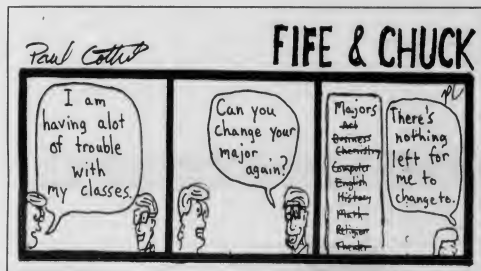 FIFE & CHUCK
I am
having alot
of trouble
with
my classes.
Can you
change your
major
again?
Majors
Art
Business
Chemistry
Computer
English
History
Math
Religion
Theater
There's
nothing
left for
me to
change to.